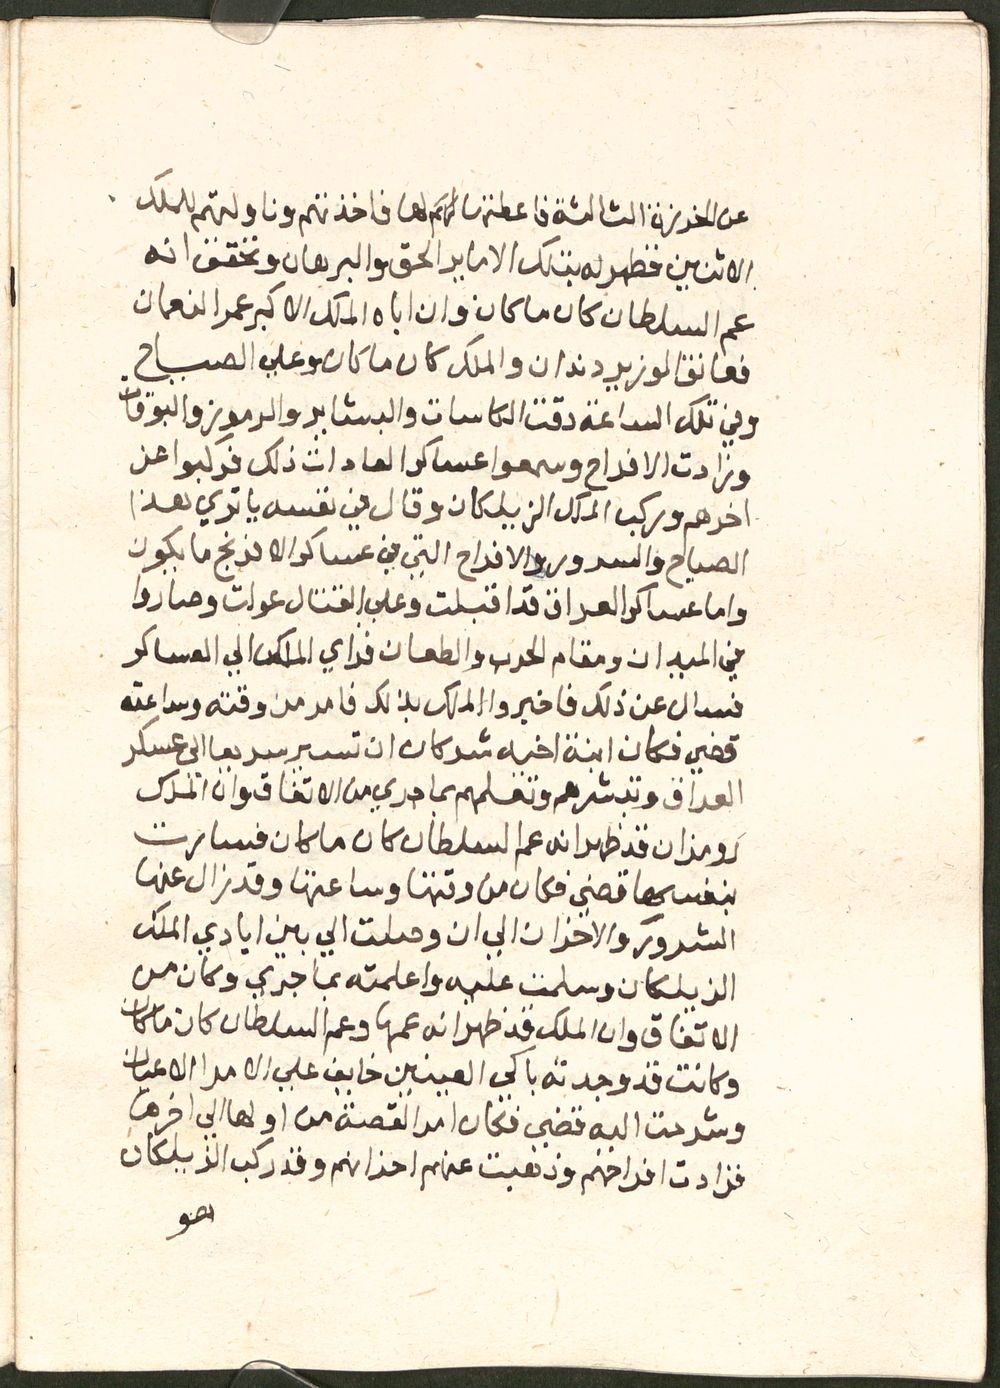 عن الخرزة الثالثة فاعطتها لهم لها فاخذتهم وناولتهم للملك
الاثنين فظهر له بتلك الاماير الحق والبرهان وتحقق انه
عم السلطان كان ماكان وان اباه الملك الاكبر عمر النعمان
فعانق الوزير دندان والملك كان ماكان وعلي الصباح
وفي تلك الساعة دقت الكاسات والبشاير والرموز والبوقات
وزادت الافراح وسمعوا عساكر العادات ذلك فركبوا عن
اخرهم وركب الملك الزبلكان وقال في نفسه يا تري هذا
الصياح والسرور والافراح التي في عساكر الافرنج ما يكون
واما عساكر العراق قد اقبلت وعلي القتال عولت وصاروا
في الميدان ومقام الحرب والطعان فراي الملك الي العساكر
فسال عن ذلك فاخبروا الملك بذلك فامر من وقته وساعته
قضي فكان ابنة اخيه شركان ان تسير سريعا الي عسكر
العراق وتبشرهم وتعلمهم بما جري من الاتفاق وان الملك
رومزان قد ظهر انه عم السلطان كان ماكان فسارت
بنفسها قضي فكان من وقتها وساعتها وقد زال عنها
الشرور والاحزان الي ان وصلت الي بين ايادي الملك
الزبلكان وسلمت عليه واعلمته بما جري وكان من
الاتفاق وان الملك قد ظهر انه عمها وعم السلطان كان ماكان
وكانت قد وجدته باكي العينين خايف علي الامرا الاعيان
وشرحت اليه قضي فكان امر القصة من اولها الي اخرها
فزادت افراحهم وذهبت عنهم احزانهم وقد ركب الزبلكان
هو